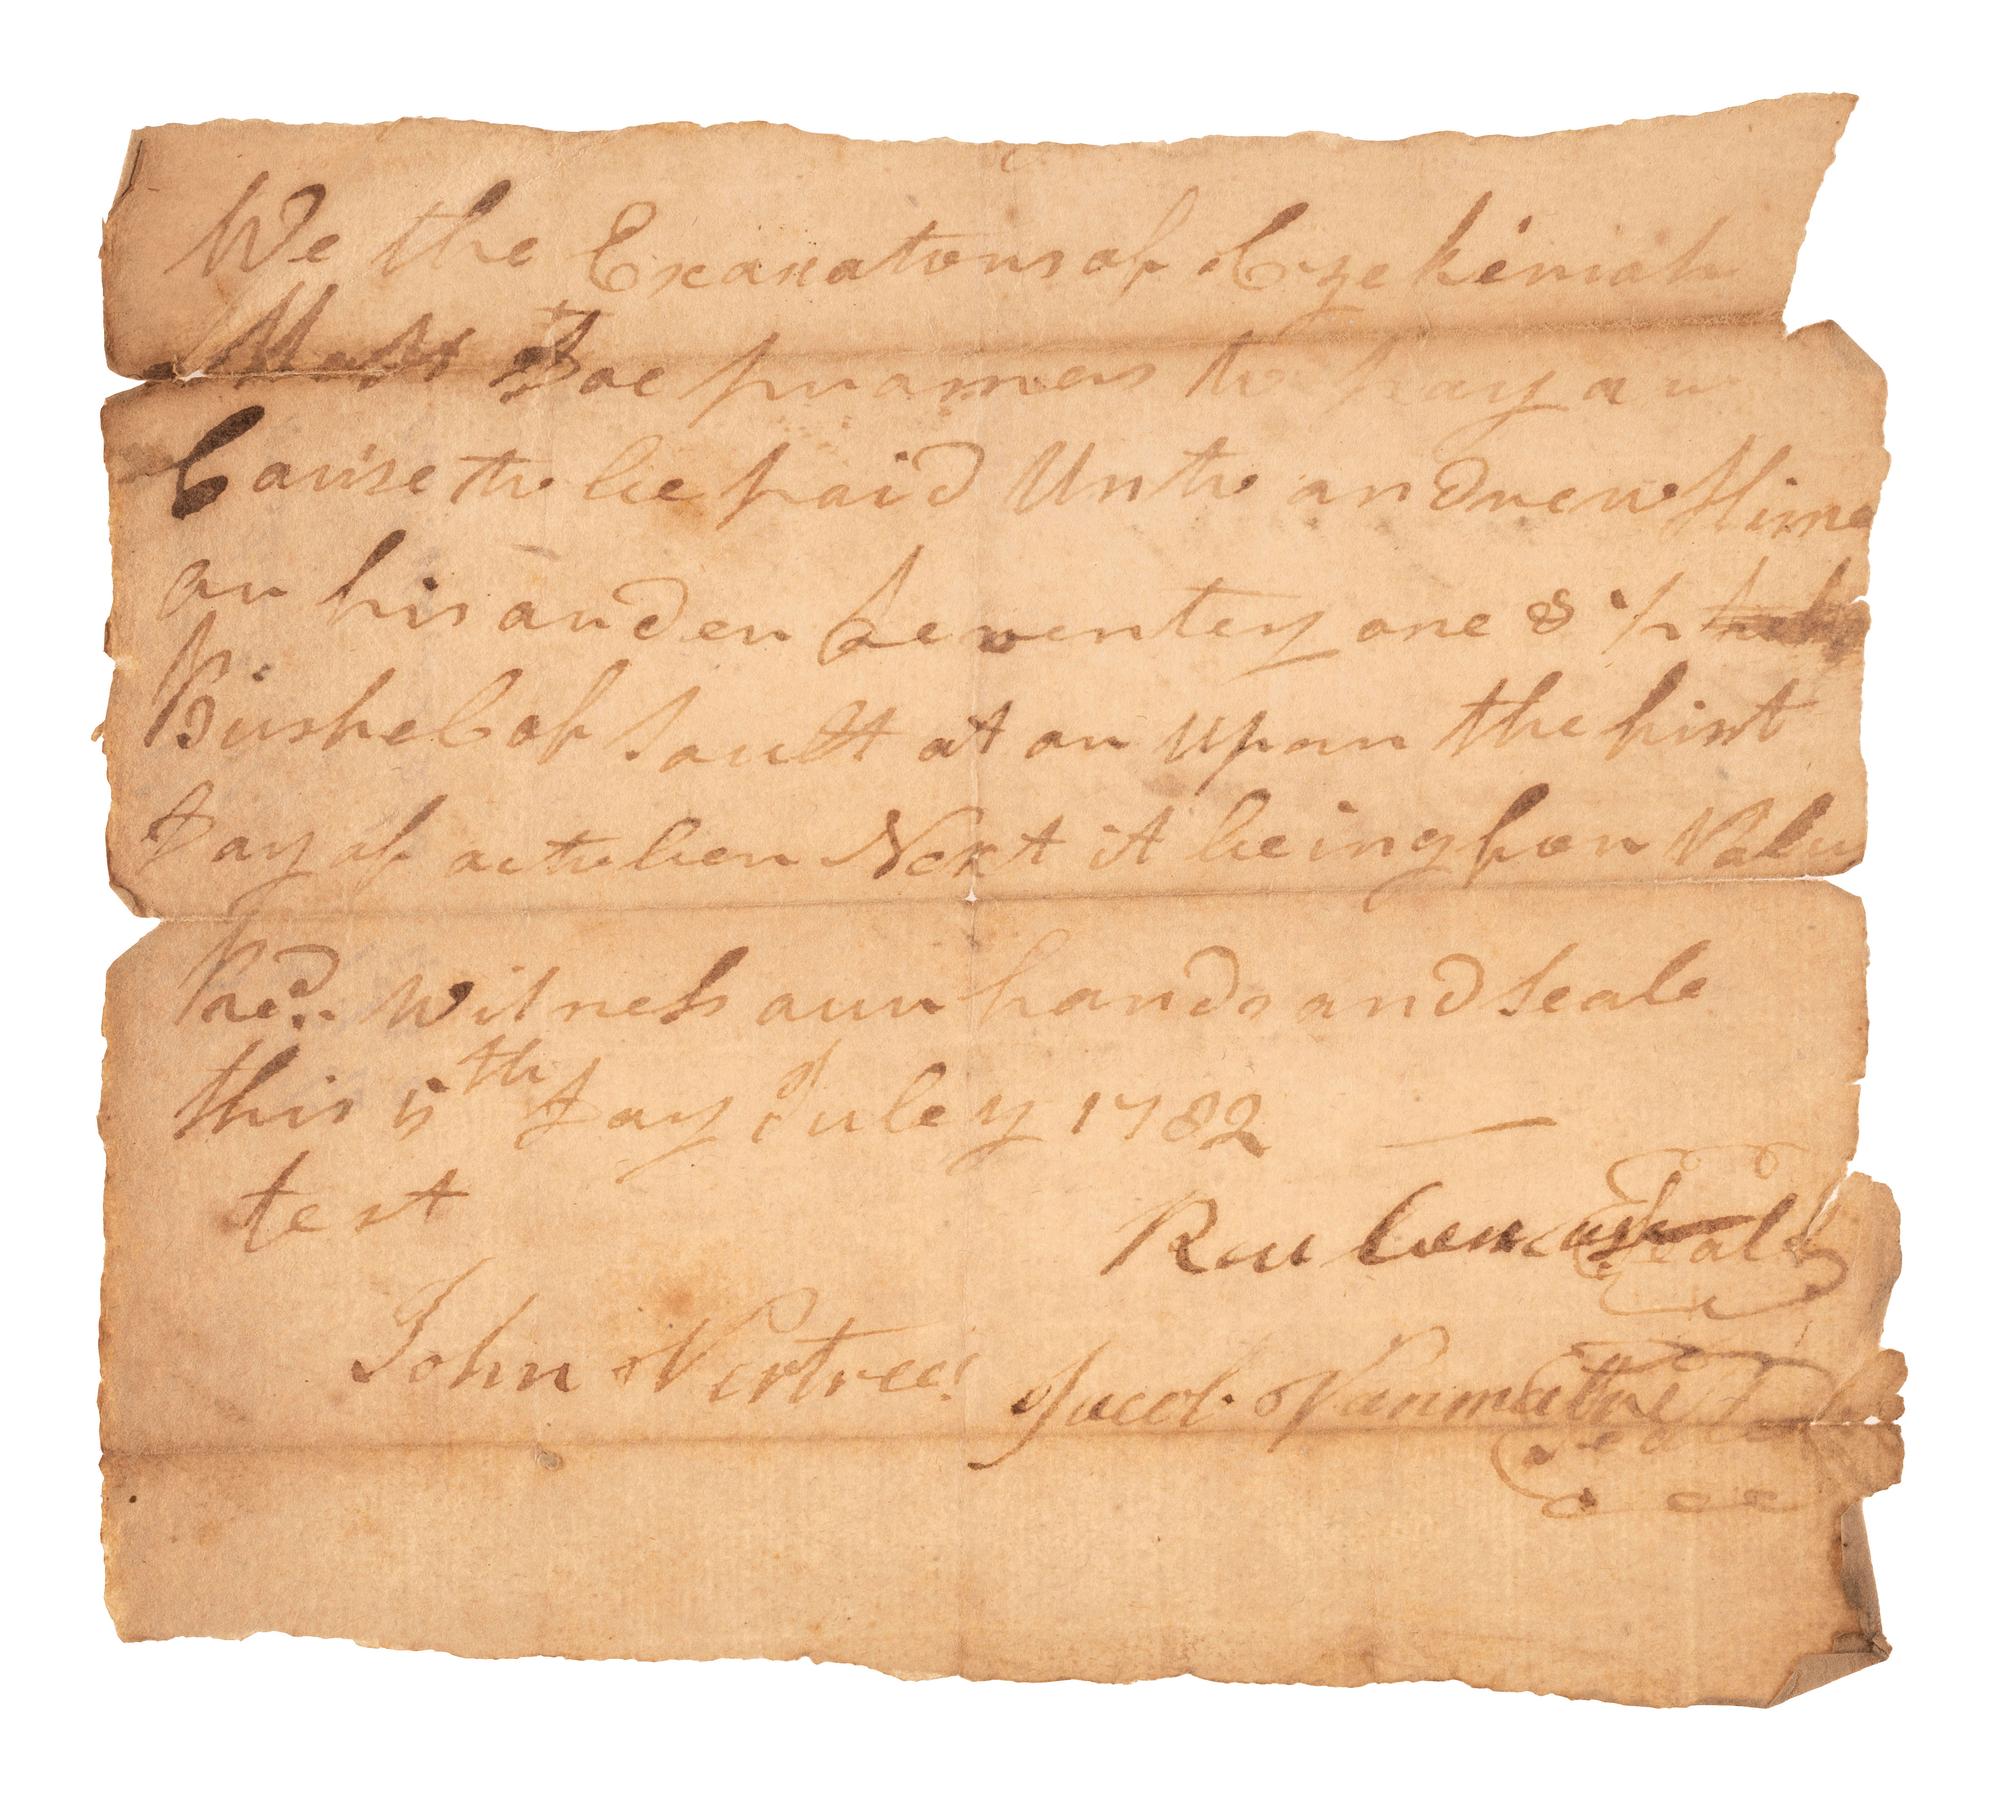 We the Exacators of Ezekeriah
Doe promers to pay or
Cause to be paid Unto andrew Hine
or his order Seventey one &
Bushel of Sault at or upon the first
Day of actober Next it being for Valu
Red. Witness our hands and Seale
this 5th Day Juley 1782 —
test
Seal
John Vertrees
Jacob Vanmatre Seale